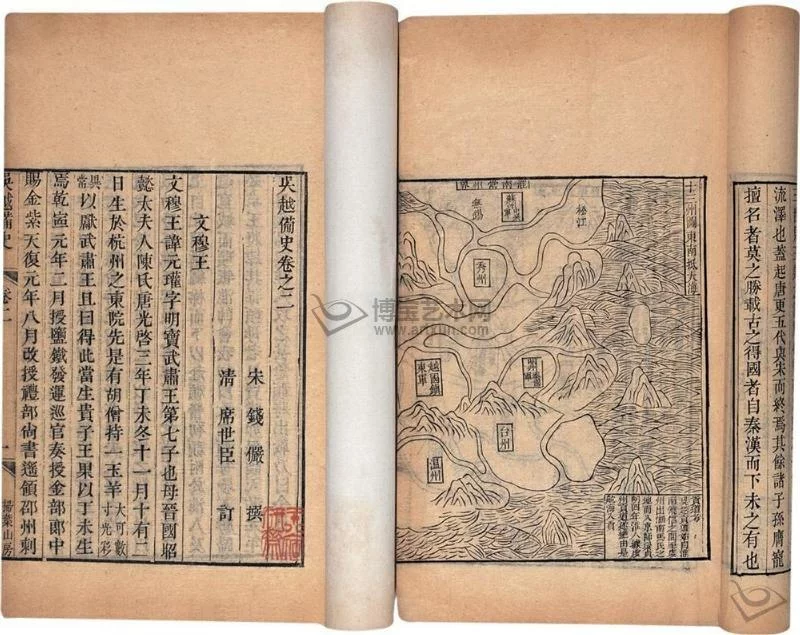 吳越備史卷之二
宋 錢儼 撰
清 席世臣 訂
文穆王
文穆王諱元瓘字明寶武肅王第七子也母晉國昭
懿太夫人陳氏唐光啓三年丁未冬十一月十有二
日生於杭州之東院先是有胡僧持一玉羊大可數寸光彩
異常以獻武肅王且曰得此當生貴子王果以丁未生
焉乾寧元年二月授鹽鐵發運巡官奏授金部郎中
賜金紫天復元年八月改授禮部尚書遙領邵州刺
吳越備史
卷二
一
掃葉山房
流澤也蓋起唐更五代衷宋而終焉其餘諸子孫膺寵
擅名者莫之勝載古之得國者自秦漢而下未之有也
十三州圖東南抵大海
淮南常州界
松江
無錫
秀州
台州
温州
博宝艺术网
www.artxun.com